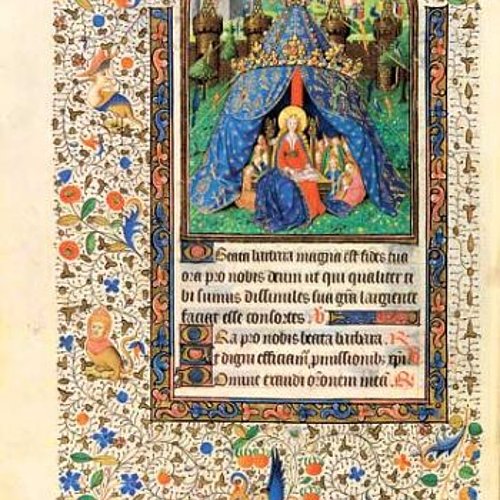 Beata barbara magna est fides tua
ora pro nobis deum ut qui qualiter ti
bi sumus dissimiles sua gra largiente
faciat esse consortes V
Ora pro nobis beata barbara R
Ut digni efficiam pmissionib xpi
Domine exaudi oronem meā R